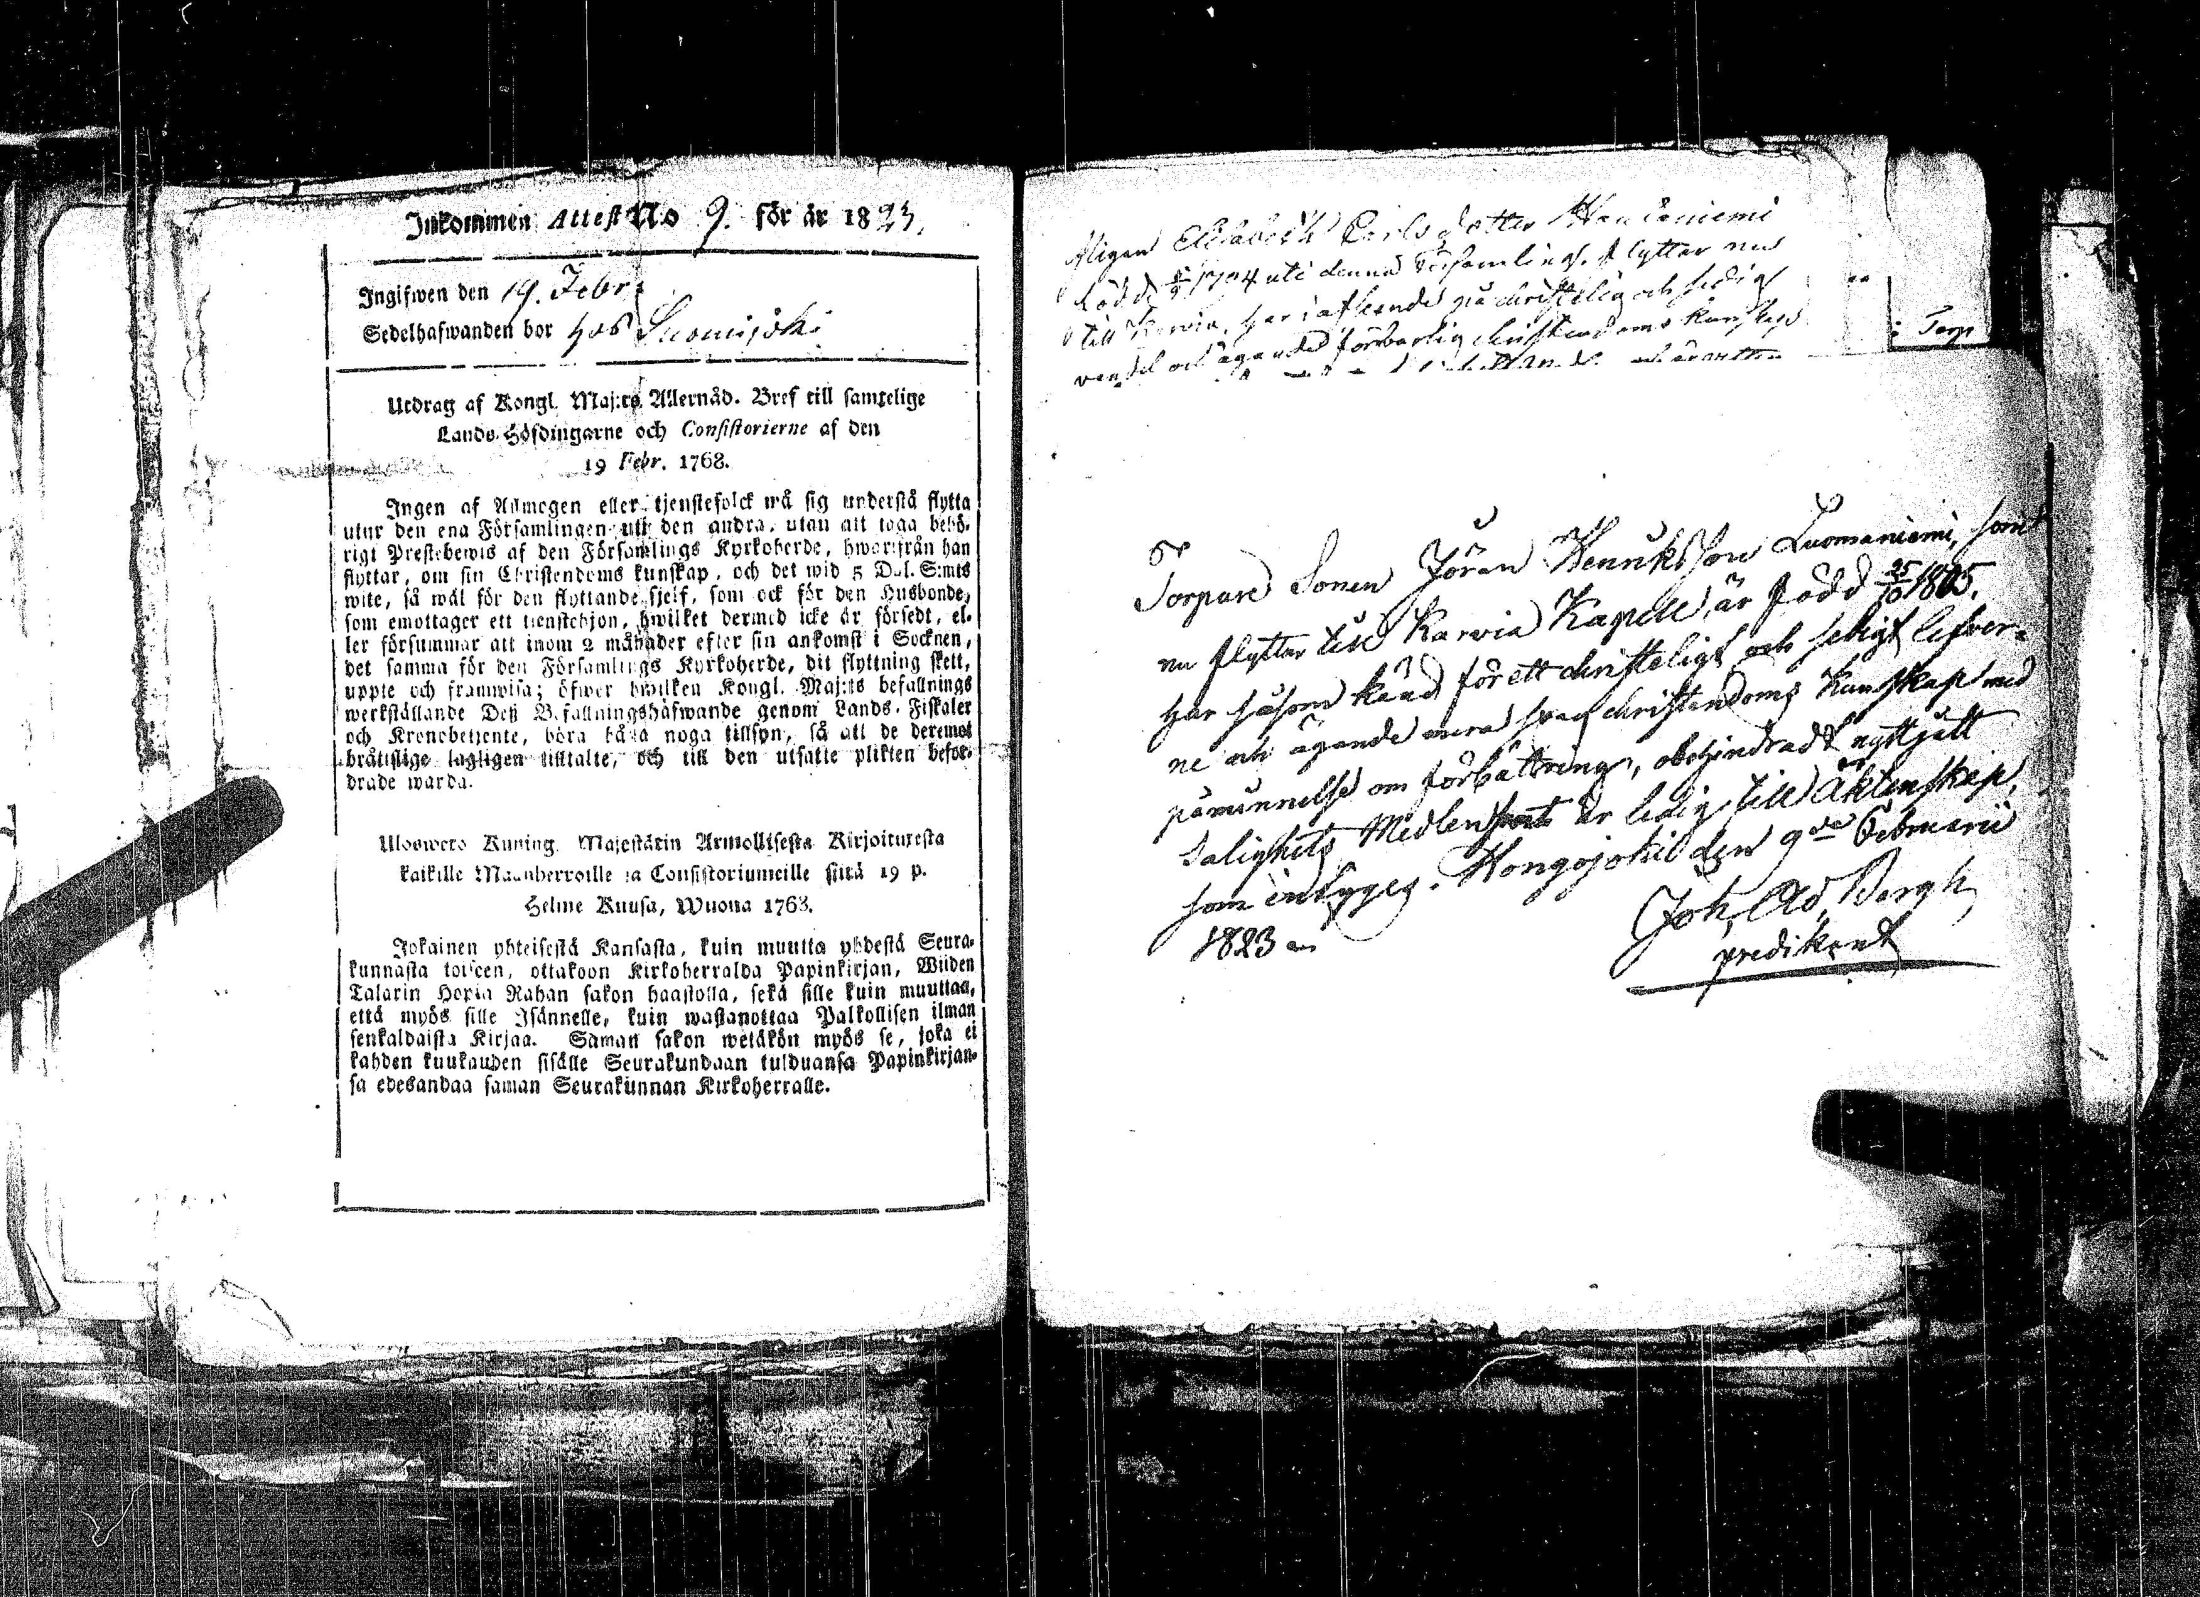 Inkommen Attest No 9. för år 1823.
Ingifwen den 14. Febr:
Sedelhafwanden bor hos Suomijoki
Utdrag af Kongl. Maj:ts Allernåd. Bref till samtelige
Lands-Höfdingarne och Consistorierne af den
19 Febr. 1768.
Ingen af Allmogen eller tjenstefolck må sig understå flytta
utur den ena Församlingen uti den andra, utan att taga behö-
rigt Prestebewis af den Församlings Kyrkoherde, hwarifrån han
flyttar, om sin Christendoms kunskap, och det wid 5 Dal. S:mts
wite, så wäl för den flyttande sjelf, som ock för den Husbonde,
som emottager ett tienstehjon, hwilket dermed icke är försedt, el-
ler försummar att inom 2 månader efter sin ankomst i Socknen,
det samma för den Församlings Kyrkoherde, dit flyttning skett,
uppte och framwisa; öfwer hwilken Kongl. Maj:ts befallnings
werkställande Deß Befallningshafwande genom Lands-Fiskaler
och Kronobetiente, böra håla noga tillsyn, så att de deremot
bråttslige lagligen tilltalte, och till den utsatte plikten befor-
drade warda.
Uloswero Kuning. Majestätin Armollisesta Kirjoituxesta
kaikille Maanherroille ja Consistoriumeille siitä 19 p.
Helme Kuusa, Wuona 1768.
Jokainen yhteisestä Kansasta, kuin muutta yhdestä Seura-
kunnasta toiseen, ottakoon Kirkoherralda Papinkirjan, Wiiden
Talarin Hopia Rahan sakon haastolla, sekä sille kuin muuttaa,
että myös sille Isännelle, kuin wastanottaa Palkollisen ilman
senkaldaista Kirjaa. Saman sakon wetäkön myös se, joka ei
kahden kuukauden sisälle Seurakundaan tulduansa Papinkirjan-
sa edesandaa saman Seurakunnan Kirkoherralle.
Pigan Elisabeth Carls dotter
född 1794 uti denna Församling, flyttar nu
till Karvia, har i afseende på christelig och sedig
vandel och ägande försvarlig christendoms kunskap
Torp
Torpare Sonen Jöran Henriksson Luomaniemi, som
nu flyttar till Karvia Kapell, är född 25/10 1805.
har såsom känd för ett christeligt och sedigt lefver-
ne och ägande mera svag christendoms kunskap med
påminnelse om förbättring, obehindradt nyttjatt
Salighets Medlen samt är ledig till Äktenskap,
som intygas. Hongojoki den 9de Februarii
1823
Joh. Ad. Bergh
predikant